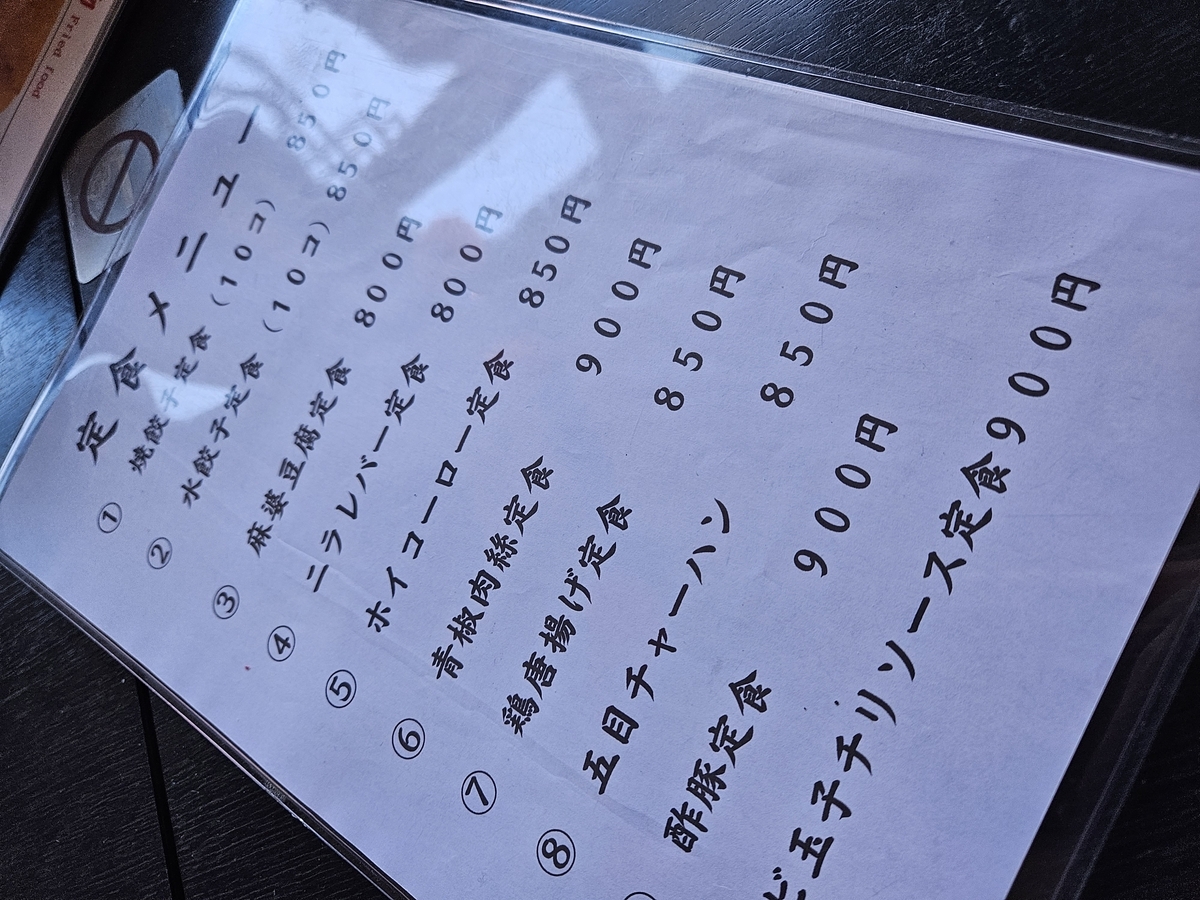 Fried Food
定食メニュー
① 焼餃子定食（１０コ） ８５０円
② 水餃子定食（１０コ）８５０円
③ 麻婆豆腐定食 ８００円
④ ニラレバー定食 ８００円
⑤ ホイコーロー定食 ８５０円
⑥ 青椒肉絲定食 ９００円
⑦ 鶏唐揚げ定食 ８５０円
⑧ 五目チャーハン ８５０円
酢豚定食 ９００円
ビ玉子チリソース定食９００円